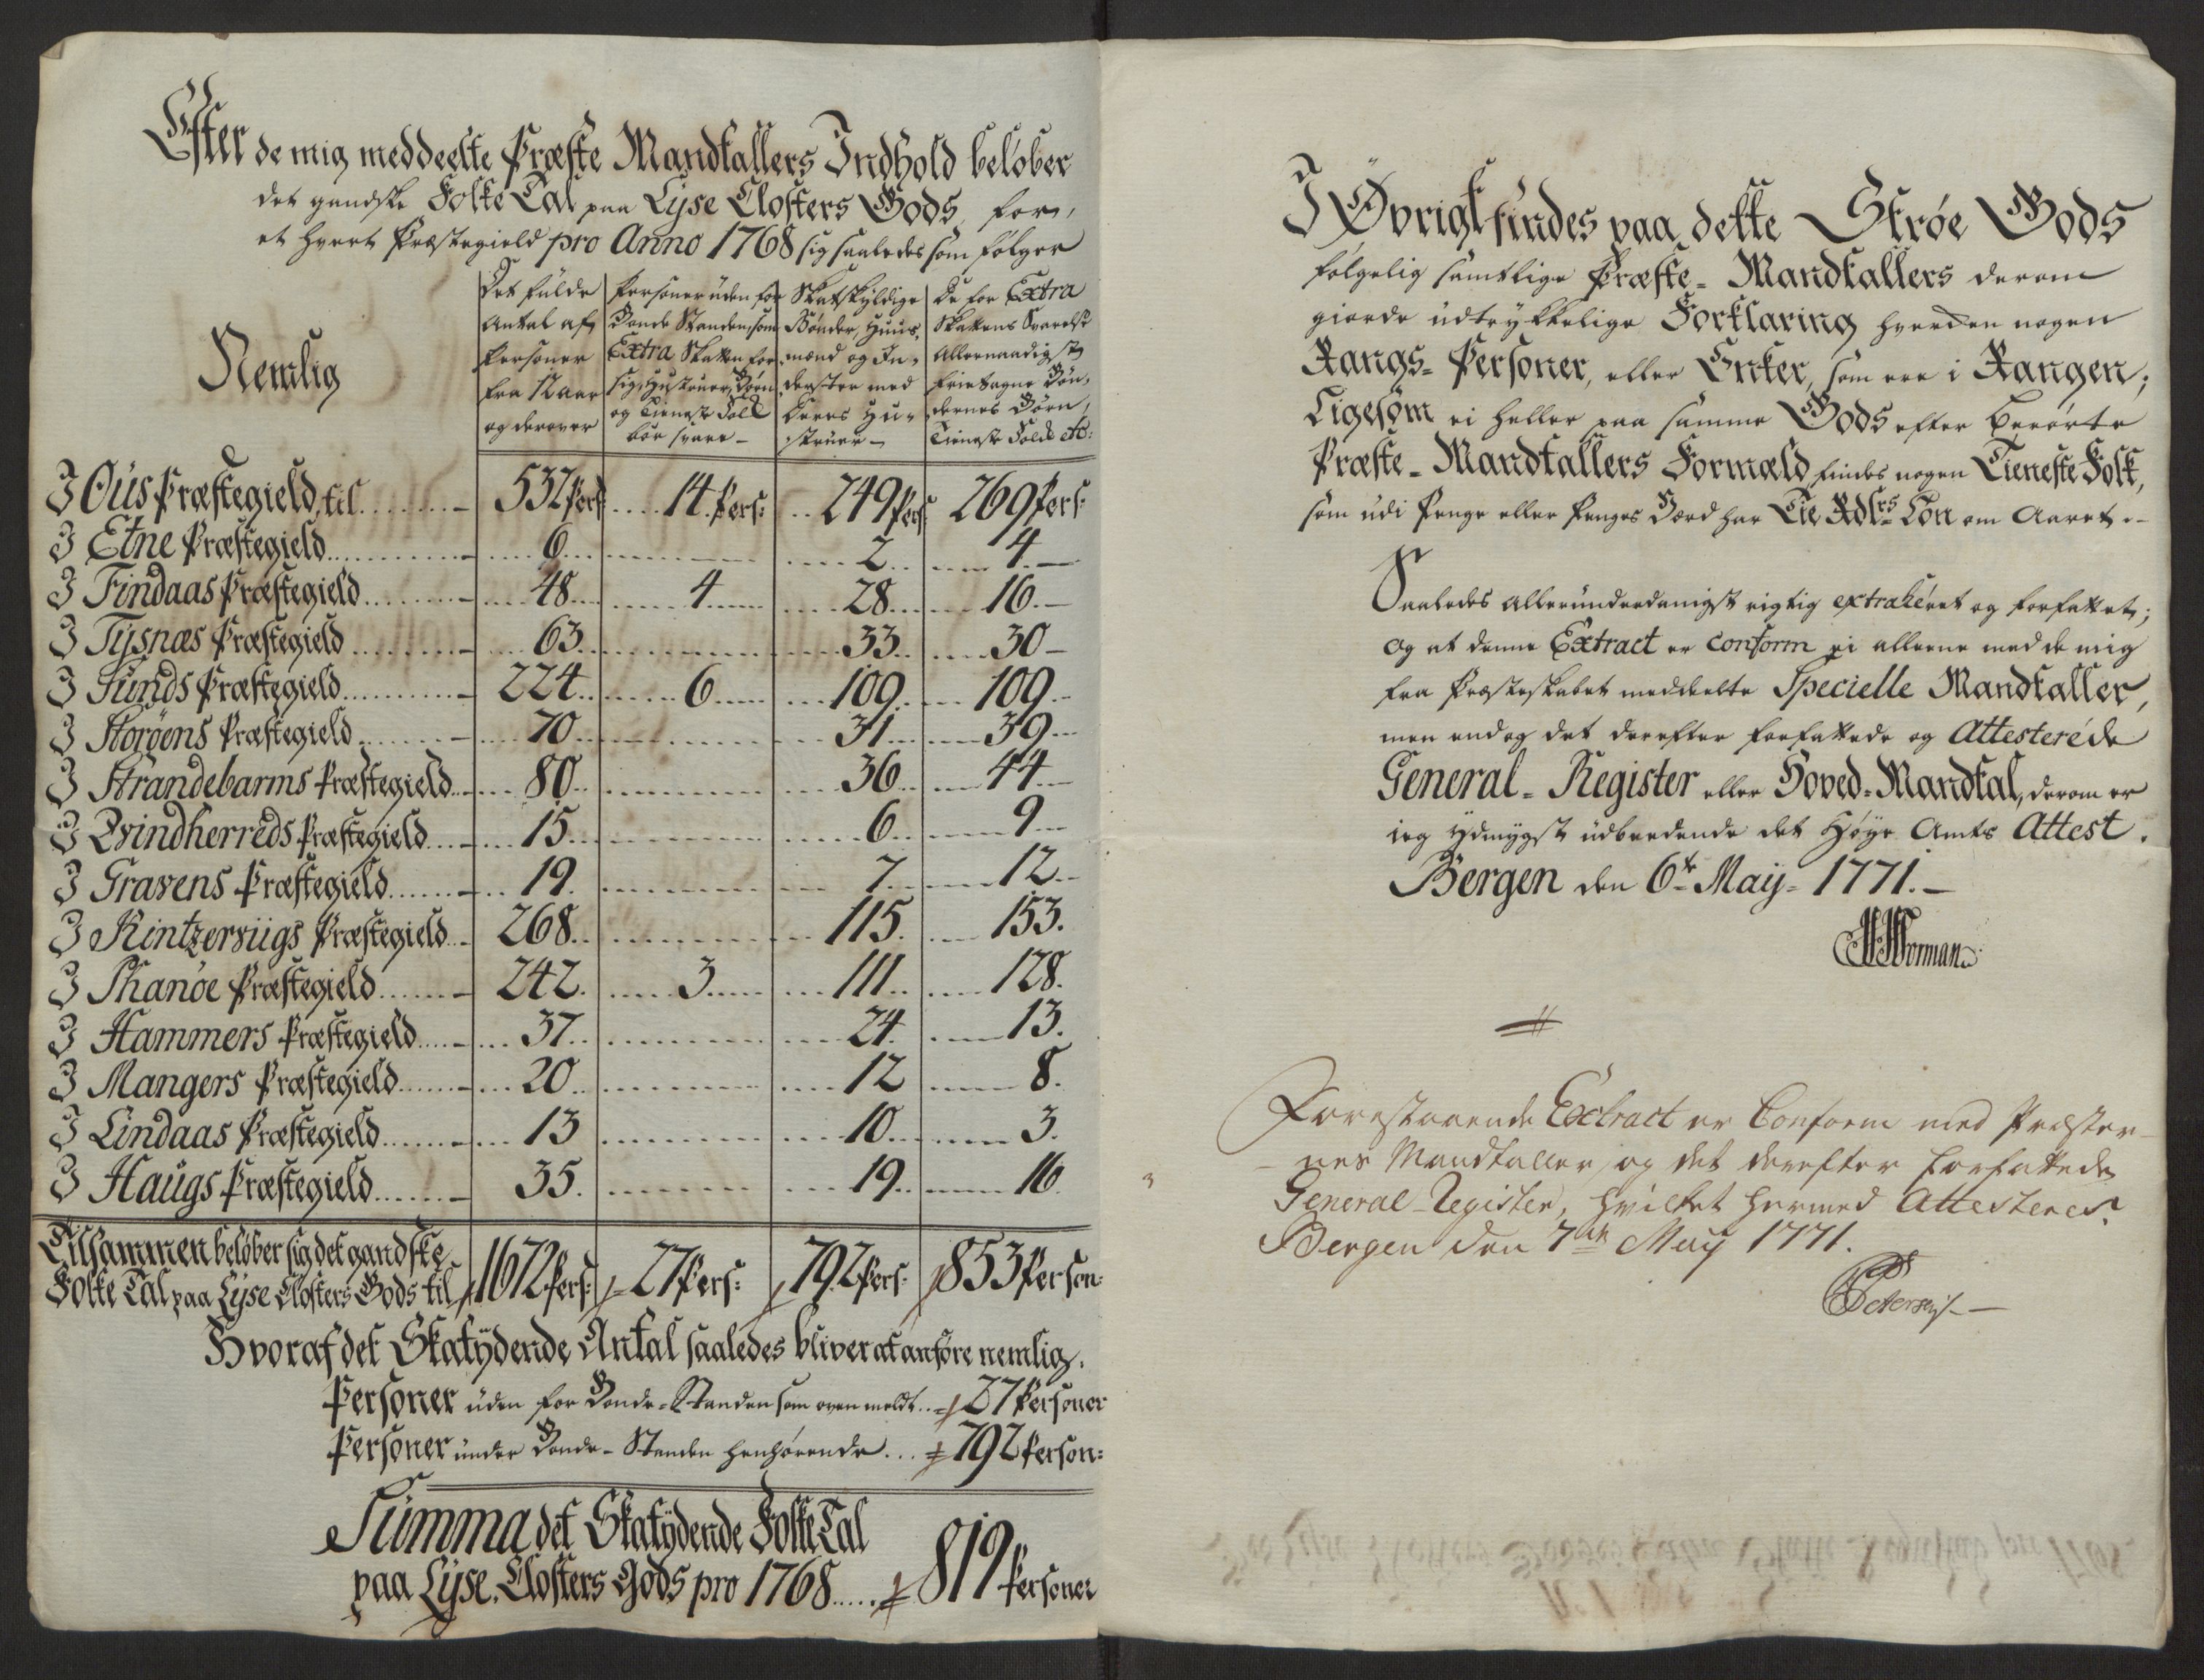 Efter de mig meddeelte Præste Mandtallers Indhold beløber
det gandske Folke Tal paa Lyse Closters Gods for,
et hvert Præstegield pro Anno 1768 sig saaledes som følger
Nemlig
Det fulde Antal af Personer fra 12 aar og derover
Personer uden for Bonde Standen, som Extra Skatten for sig, Hustruer, Børn og Tieneste Folk bør svare -
Skatskyldige Bønder, Huus- mænd og In- derster med deres Hu- struer -
De for Extra Skattens Svarelse Allernaadigst fritagne Bøn- dernes Børn, Tieneste Folck etc:
I Ous Præstegield, til 532 Pers: 14. Pers: 249 Pers: 269 Pers:
I Etne Præstegield 6 2 4. -
I Findaas Præstegield 48 4 28 16. -
I Tysnæs Præstegield 63. 33. 30 -
I Sunds Præstegield 224. 6 109. 109
I Storøens Præstegield 70 31 39
I Strandebarms Præstegield 80. 36 44
I Qvindherreds Præstegield 15. 6 9
I Gravens Præstegield 19. 7 12
I Kintzerviigs Præstegield 268. 115. 153.
I Skanøe Præstegield 242. 3 111. 128.
I Hammers Præstegield 37. 24. 13.
I Mangers Præstegield 20 12 8.
I Lindaas Præstegield 13 10. 3.
I Haugs Præstegield 35. 19. 16.
Tilsammen beløber sig det gandske
Folke Tal paa Lyse Closters Gods til 1672 Pers: 27 Pers: 792 Pers: 853 Person:
Hvoraf det Skatydende Antal saaledes bliver at anføre nemlig.
Personer uden for Bonde-Standen som oven meldt 27 Personer
Personer under Bonde-Standen henhørende 792 Person:
Summa det Skatydende Folke Tal
paa Lyse Closters Gods pro 1768 819 Personer
I Øvrigt findes paa dette Strøe Gods
følgelig samtlige Præste-Mandtallers derom
giorde udtrykkelige Forklaring hverken nogen
Rangs-Personer, eller Enker, som ere i Rangen;
Ligesom ei heller paa samme Gods efter berørte
Præste-Mandtallers Formæld findes nogen Tieneste Folk,
som udi Penge eller Penges Værd har Tie Rdlrs Løn om Aaret. -
Saaledes allerunderdanigst rigtig extraheret og forfattet;
og at denne Extract er conform ei alleene med de mig
fra Præsteskabet meddeelte Specielle Mandtaller,
men endog det derefter forfattede og Attesterede
General-Register eller Hoved-Mandtal, derom er
ieg ydmygst udbeedende det Høye Amts Attest.
Bergen den 6te May 1771. -
Worman
Forestaaende Extract er Conform med Præster-
nes Mandtaller, og det derefter forfattede
General-Register, hvilket hermed Attesteres.
Bergen den 7de May 1771.
Petersen